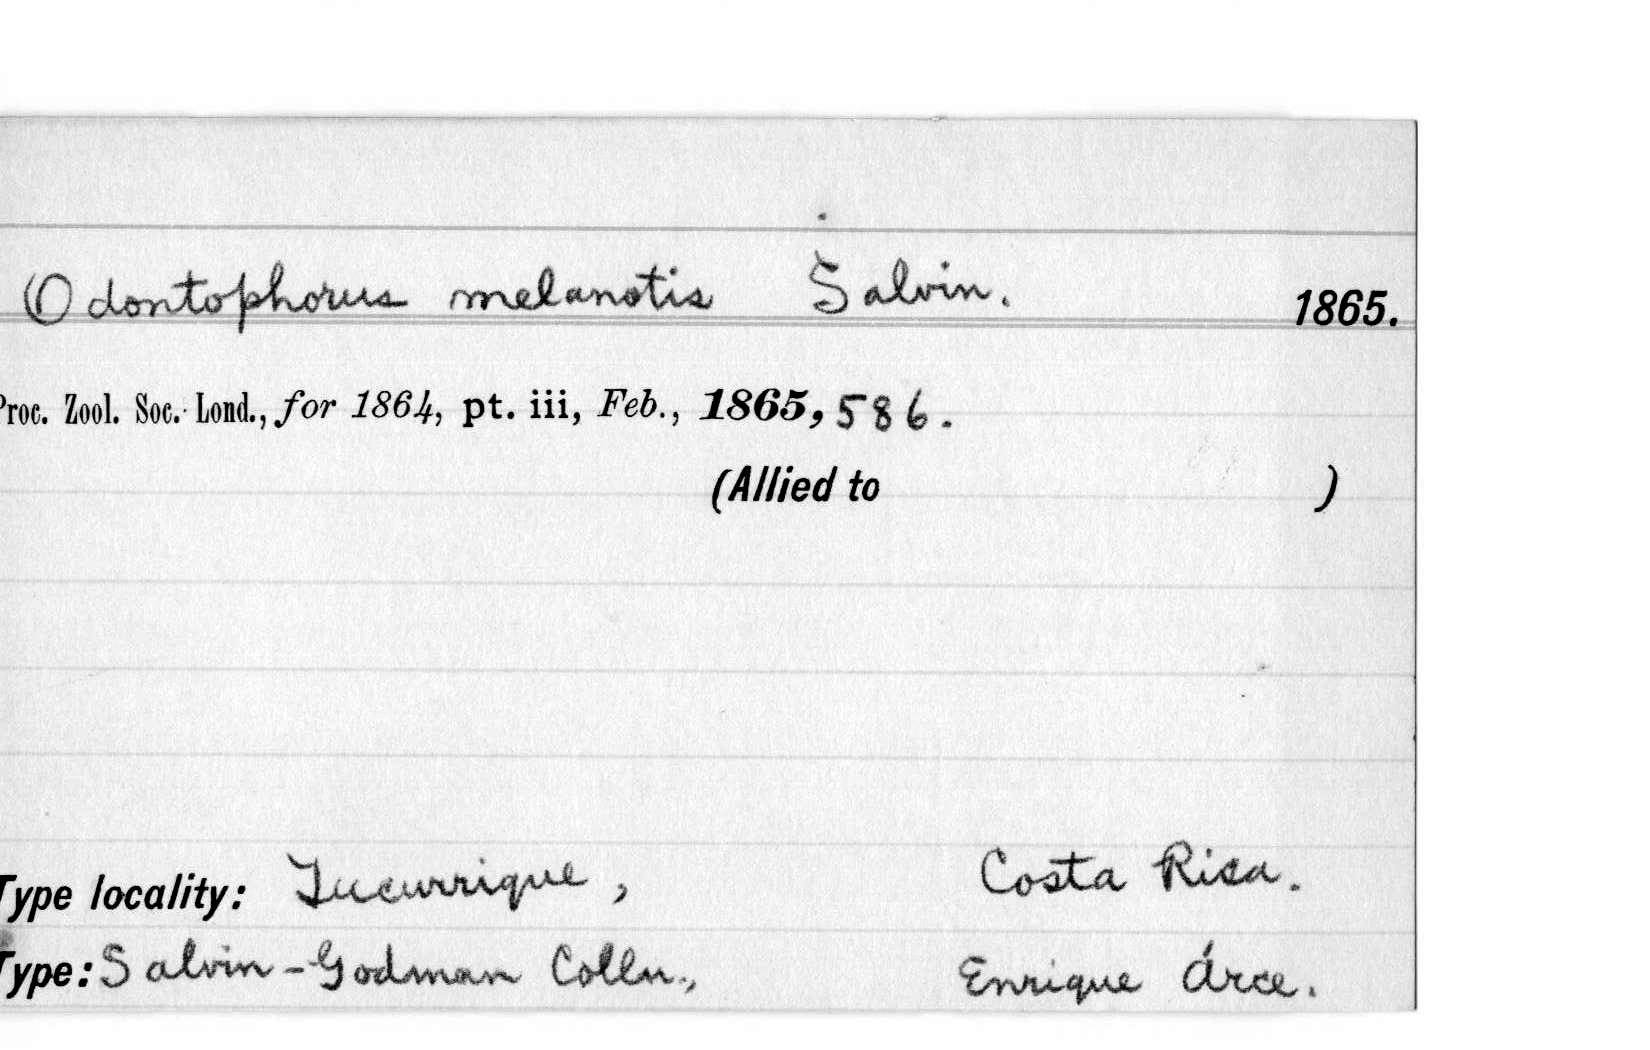 Odontophorus melanotis Salvin. 1865.
Proc. Zool. Soc. Lond., for 1864, pt. iii, Feb., 1865, 586.
(Allied to )
Type locality: Tucurrique, Costa Rica.
Type: Salvin-Godman Colln., Enrique Árce.